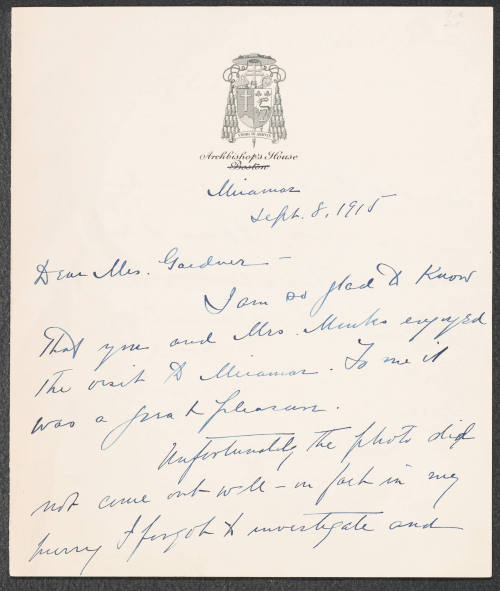 Archbishop's House
Boston
Miramar
Sept. 8, 1915
Dear Mrs. Gardner –
I am so glad to know
that you and Mrs. Monks enjoyed
the visit to Miramar. To me it
was a great pleasure.
Unfortunately the photo did
not come out well – in fact in my
hurry I forgot to investigate and